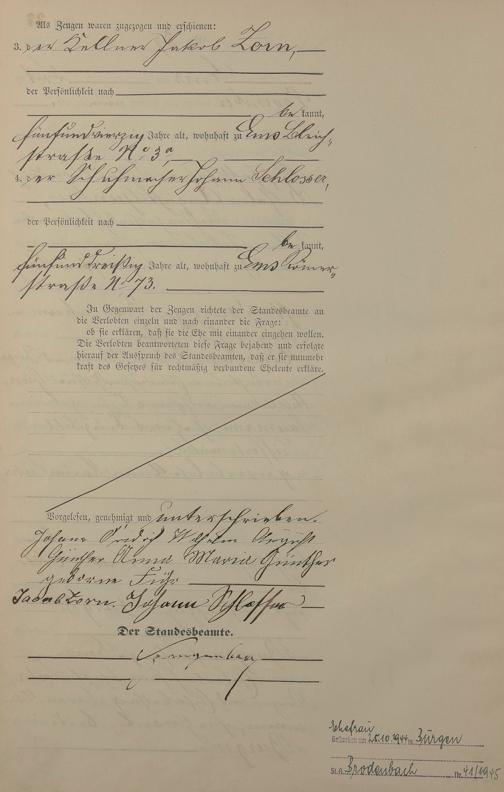 Als Zeugen waren zugezogen und erschienen:
3. der Kellner Jakob Zorn,
der Persönlichkeit nach
be kannt,
fünfundvierzig Jahre alt, wohnhaft zu Ems Bleich-
straße No 3a
4. der Schuhmacher Johann Schlosser,
der Persönlichkeit nach
be kannt,
fünfunddreißig Jahre alt, wohnhaft zu Ems Römer-
straße No 73.
In Gegenwart der Zeugen richtete der Standesbeamte an
die Verlobten einzeln und nach einander die Frage:
ob sie erklären, daß sie die Ehe mit einander eingehen wollen.
Die Verlobten beantworteten diese Frage bejahend und erfolgte
hierauf der Ausspruch des Standesbeamten, daß er sie nunmehr
kraft des Gesetzes für rechtmäßig verbundene Eheleute erkläre.
Vorgelesen, genehmigt und unterschrieben.
Johann Wilhelm August
Günther Anna Maria Günther
geborne Führ
Jacob Zorn. Johann Schlosser
Der Standesbeamte.
Ehefrau
Gestorben am 25.10.1944 in Burgen
St.A. Brodenbach Nr. 41/1945